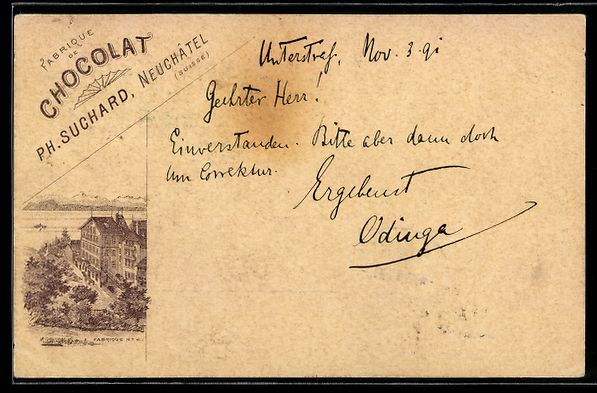 FABRIQUE
DE
CHOCOLAT
PH. SUCHARD, NEUCHÂTEL
(SUISSE)
Unterstraß, Nov. 3. 91
Geehrter Herr!
Einverstanden. Bitte aber dann doch
um Correktur.
Ergebenst
Odinga
FABRIQUE Nº